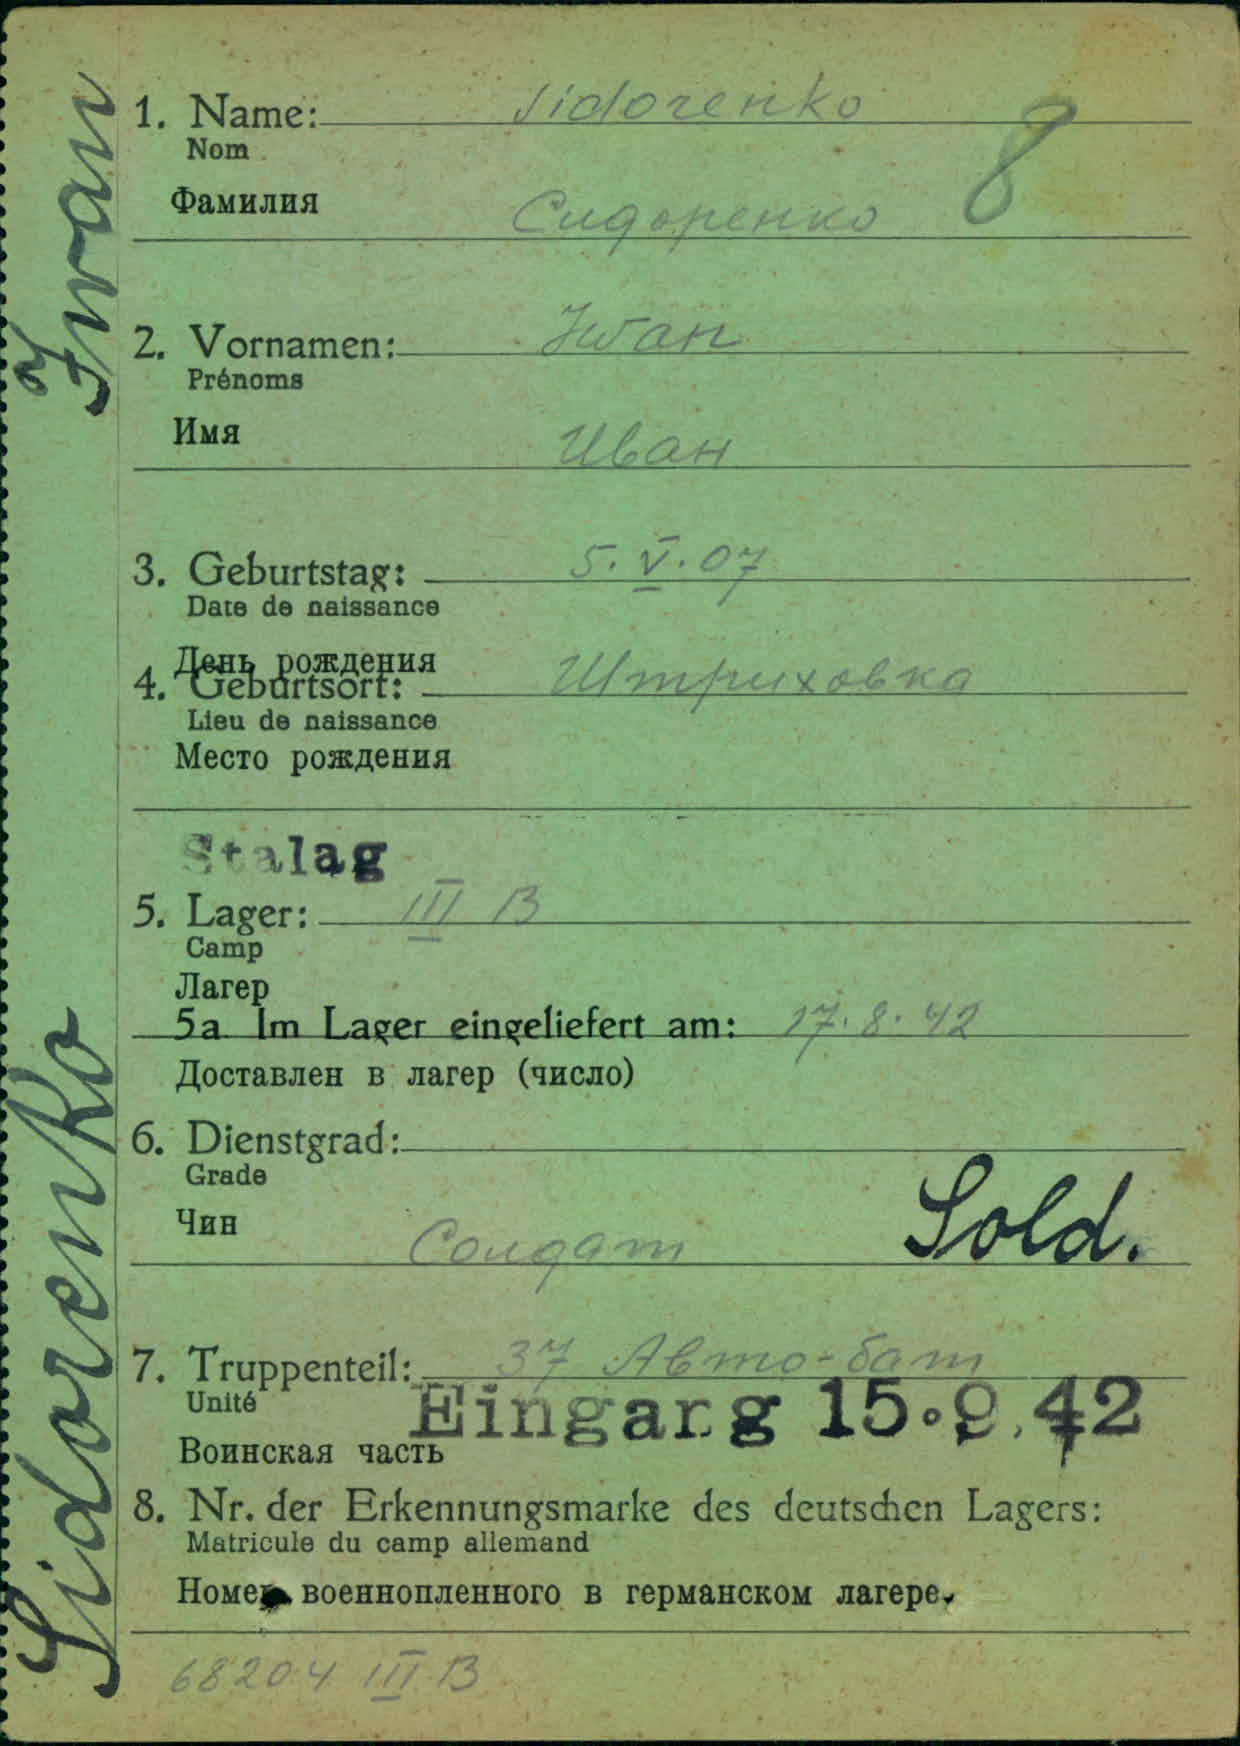 1. Name: Sidorenko
Nom
8
Фамилия Сидоренко
2. Vornamen: Iwan
Prénoms
Имя Иван
3. Geburtstag: 5. V. 07
Date de naissance
День рождения
4. Geburtsort: Штриховка
Lieu de naissance
Место рождения
Stalag
5. Lager: III B
Camp
Лагер
5a Im Lager eingeliefert am: 17. 8. 42
Доставлен в лагер (число)
6. Dienstgrad:
Grade
Чин Солдат Sold.
7. Truppenteil: 37 Авто-бат
Unité
Eingang 15.9.42
Воинская часть
8. Nr. der Erkennungsmarke des deutschen Lagers:
Matricule du camp allemand
Номер военнопленного в германском лагере.
68204 III B
Sidorenko Iwan